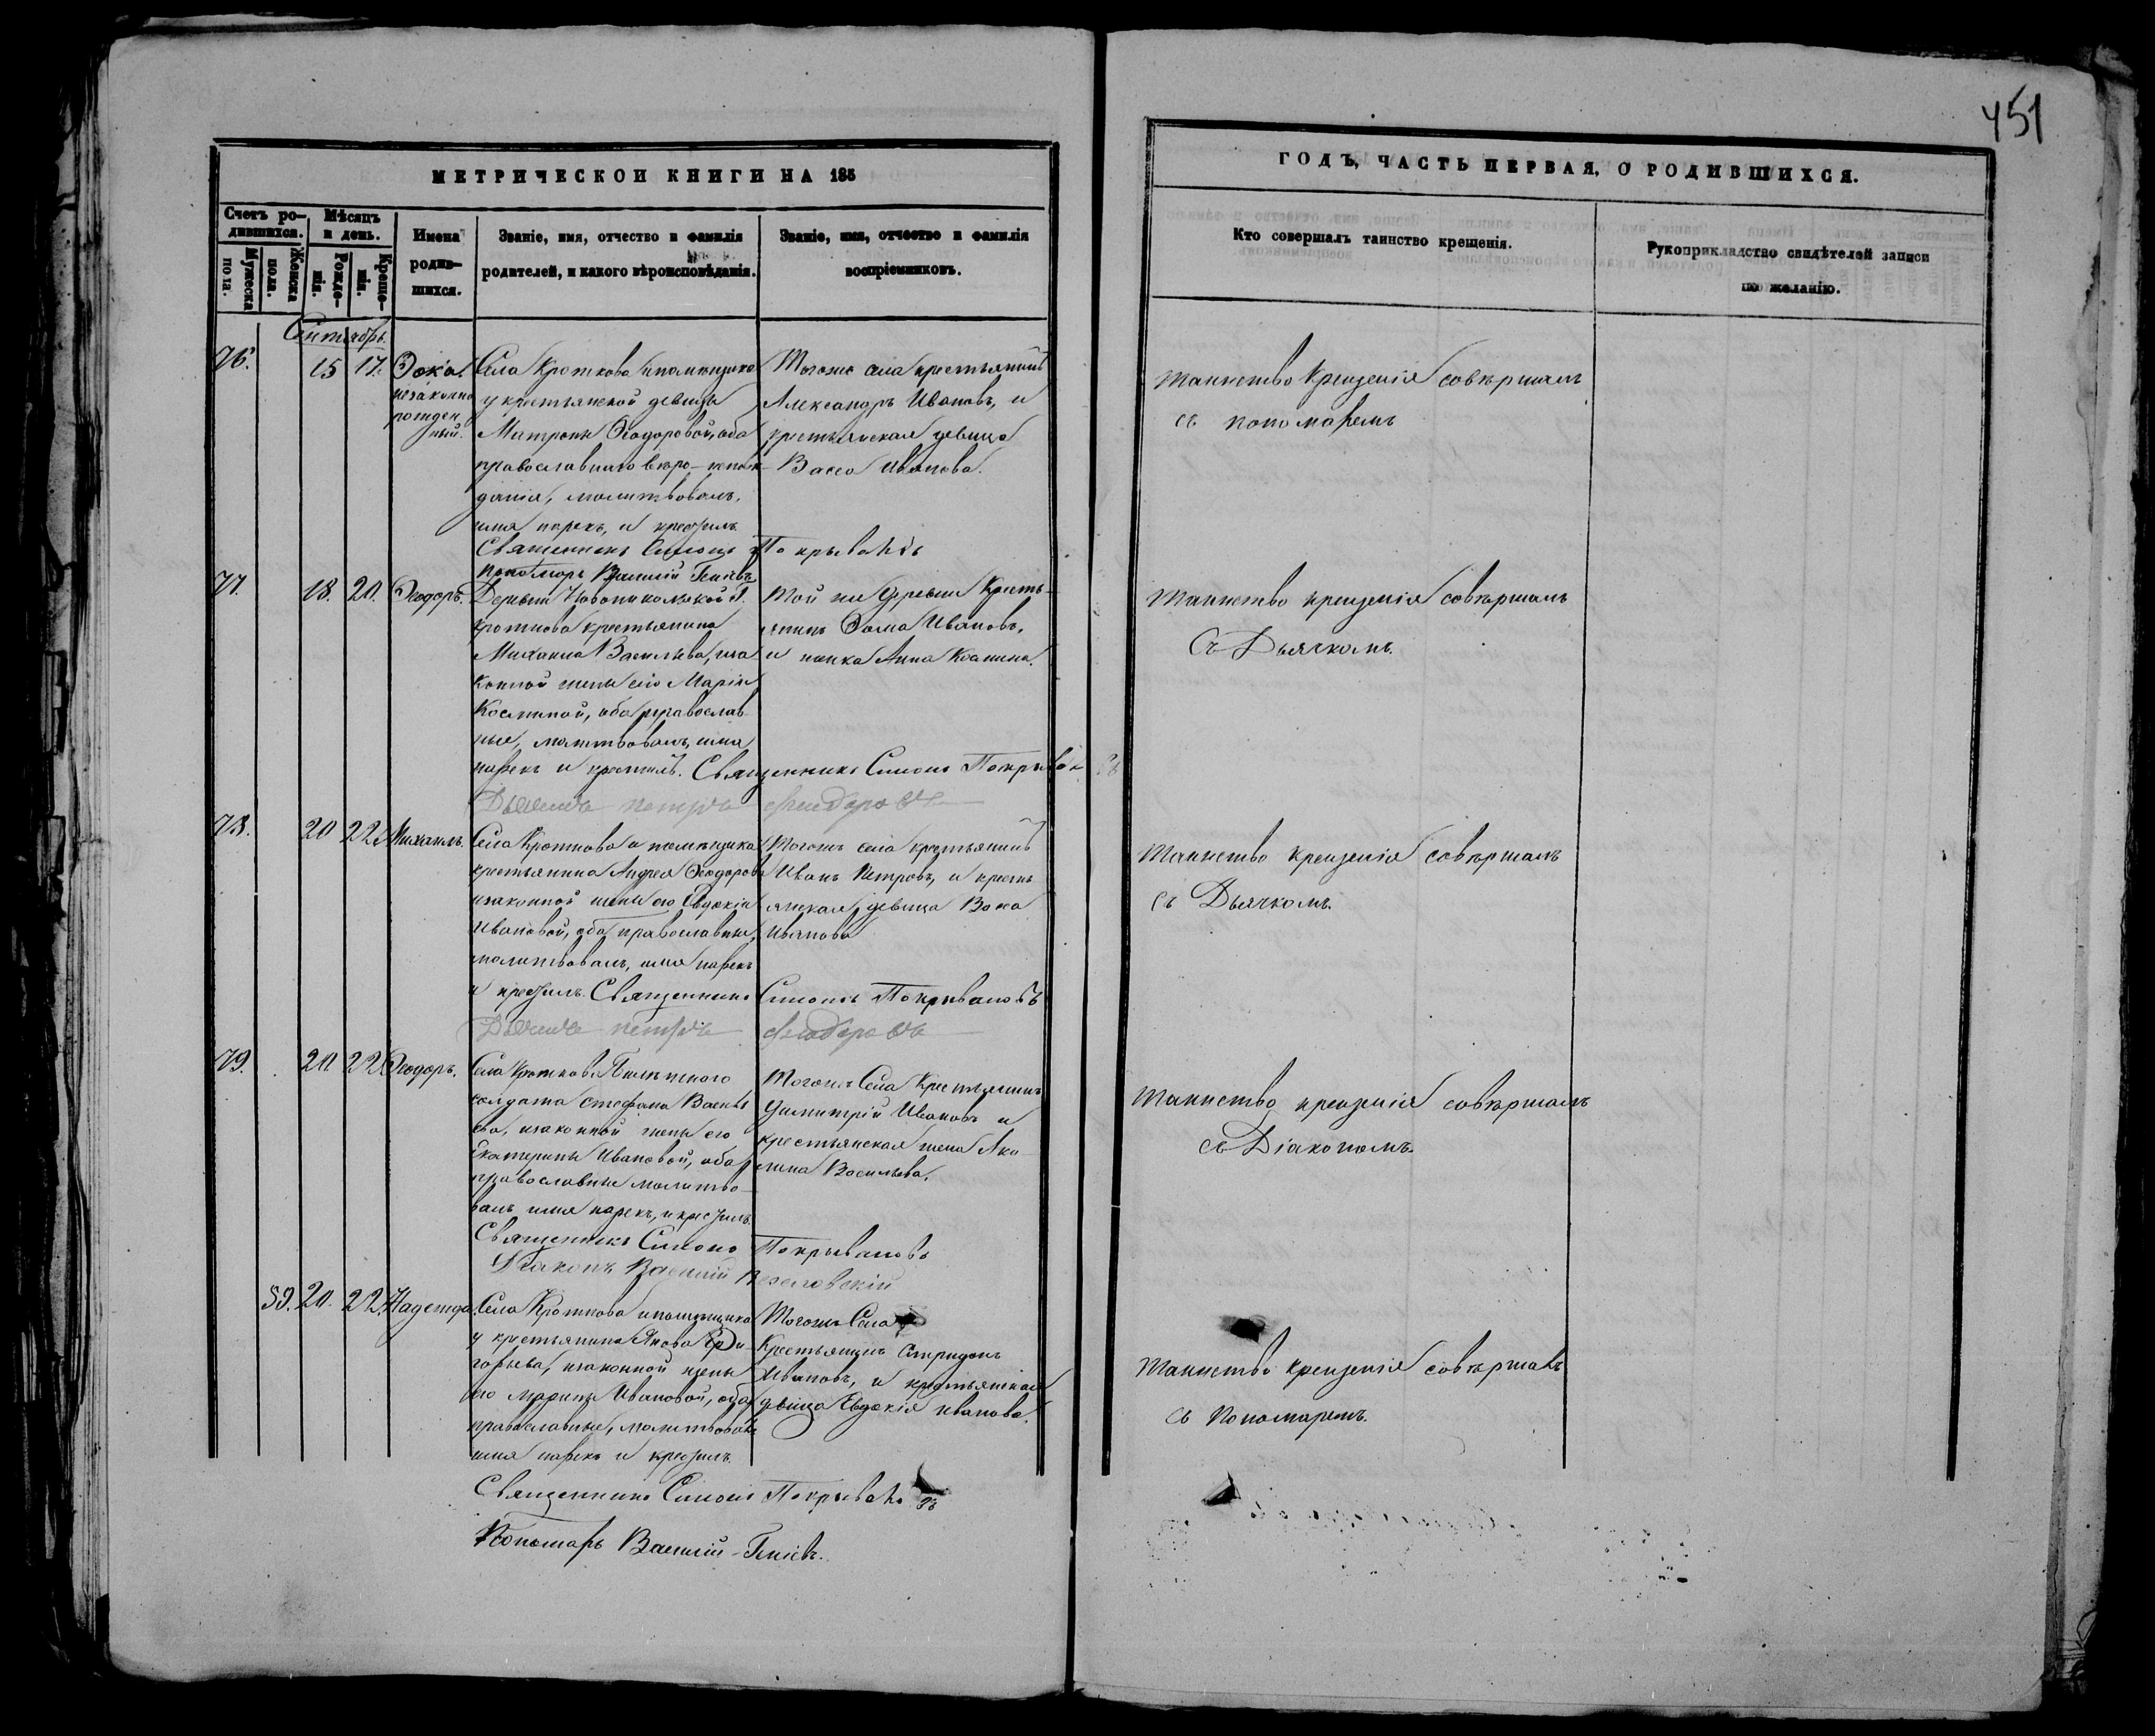 451
МЕТРИЧЕСКОЙ КНИГИ НА 185
ГОДЪ, ЧАСТЬ ПЕРВАЯ, О РОДИВШИХСЯ.
Счетъ родившихся.
Мужеска пола.
Женска пола.
Мѣсяцъ и день.
Рожденія.
Крещенія.
Имена родившихся.
Званіе, имя, отчество и фамилія
родителей, и какого вѣроисповѣданія.
Званіе, имя, отчество и фамилія
воспріемниковъ.
Кто совершалъ таинство крещенія.
Рукоприкладство свидѣтелей записи
по желанію.
Сентябрь.
76. 15 17.
незаконно
рожден
ный.
Села Кроткова
у крестьянской девицы
Матроны Ѳеодоровой, оба
православнаго вѣро-испов
данія, молитвовалъ,
имя нарекъ, и крестилъ
Священникъ Симонъ Покрывановъ
Пономарь Василій
Тогоже села крестьянинъ
Александръ Ивановъ, и
крестьянская девица
Васса Иванова.
Таинство крещенія совершалъ
съ пономаремъ
77. 18. 20. Ѳеодоръ.
Деревни Новоникольской
Кроткова крестьянина
Михаила Васильева, иза
конной жены его Маріи
Косминой, оба православ
ные, молитвовалъ, имя
нарекъ и крестилъ. Священникъ Симонъ Покрывановъ
Дьячекъ Петръ
Той же деревни Кресть
янинъ Ѳома Ивановъ,
и Анна
Таинство крещенія совершалъ
Съ Дьячкомъ.
78. 20 22 Михаилъ.
Села Кроткова помѣщика
крестьянина Андрея Ѳеодорова
изаконной жены его Евдокіи
Ивановой, оба православные,
молитвовалъ, имя нарекъ
и крестилъ. Священникъ Симонъ Покрывановъ
Дьячекъ Петръ
Тогожъ села крестьянинъ
Иванъ Петровъ, и кресть
янская девица
Иванова
Таинство крещенія совершалъ
съ Дьячкомъ.
79. 20 22 Ѳеодоръ.
Села Кроткова
солдата Стефана Василье
ва, изаконной жены его
Екатерины Ивановой, оба
православные молитво
валъ имя нарекъ, и крестилъ.
Священникъ Симонъ Покрывановъ
Діаконъ Василій Веселовскій
Тогожъ Села Крестьянинъ
Димитрій Ивановъ и
крестьянская жена Аку
лина Васильева.
Таинство крещенія совершалъ
съ Діакономъ.
59. 20. 22. Надежда.
Села Кроткова помѣщика
у крестьянина Якова Гри
горьева, изаконной жены
его Марины Ивановой, оба
православные, молитвовалъ
имя нарекъ и крестилъ.
Священникъ Симонъ Покрывановъ
Пономарь Василій
Тогожъ Села
Крестьянинъ Спиридонъ
Ивановъ, и крестьянская
девица Евдокія Иванова.
Таинство крещенія совершалъ
съ Пономаремъ.